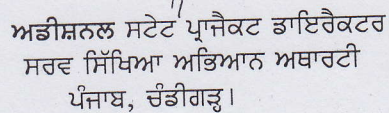 ਅਡੀਸ਼ਨਲ ਸਟੇਟ ਪ੍ਰਾਜੈਕਟ ਡਾਇਰੈਕਟਰ
ਸਰਵ ਸਿੱਖਿਆ ਅਭਿਆਨ ਅਥਾਰਟੀ
ਪੰਜਾਬ, ਚੰਡੀਗੜ੍ਹ।